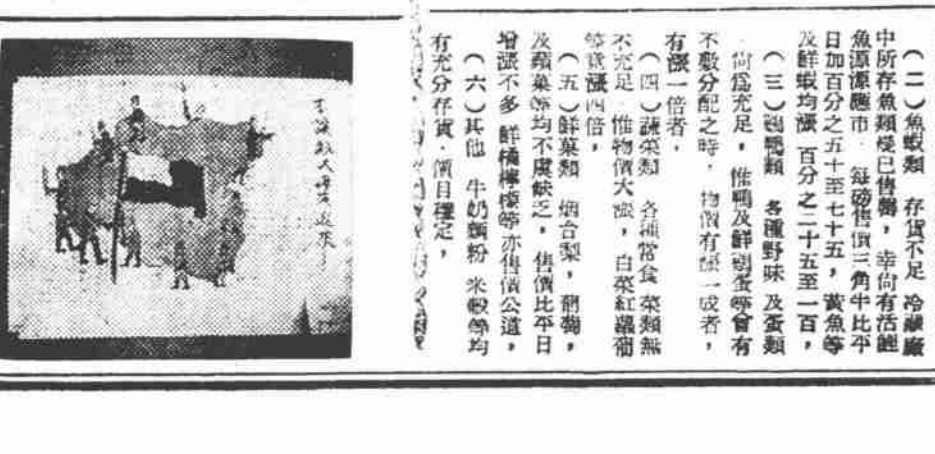 （二）魚蝦類　存貨不足　冷藏廠
中所存魚類幾已售罄，幸尚有活鯉
魚源源應市．每磅售價三角半比平
日加百分之五十至七十五，黃魚等
及鮮蝦均漲　百分之二十五至一百，
（三）鷄鴨類　各種野味　及蛋類
尙爲充足，惟鴨及鮮鷄蛋等會有
不敷分配之時．物價有漲一成者，
有漲一倍者．
（四）蔬菜類　各種常食菜類無
不充足．惟物價大漲，白菜紅蘿蔔
等竟漲四倍，
（五）鮮菓類　烟台梨，葡萄，
及蘋菓等均不虞缺乏，售價比平日
增漲不多　鮮橘檸檬等亦售價公道，
（六）其他　牛奶麵粉　米穀等均
有充分存貨．價目穩定，